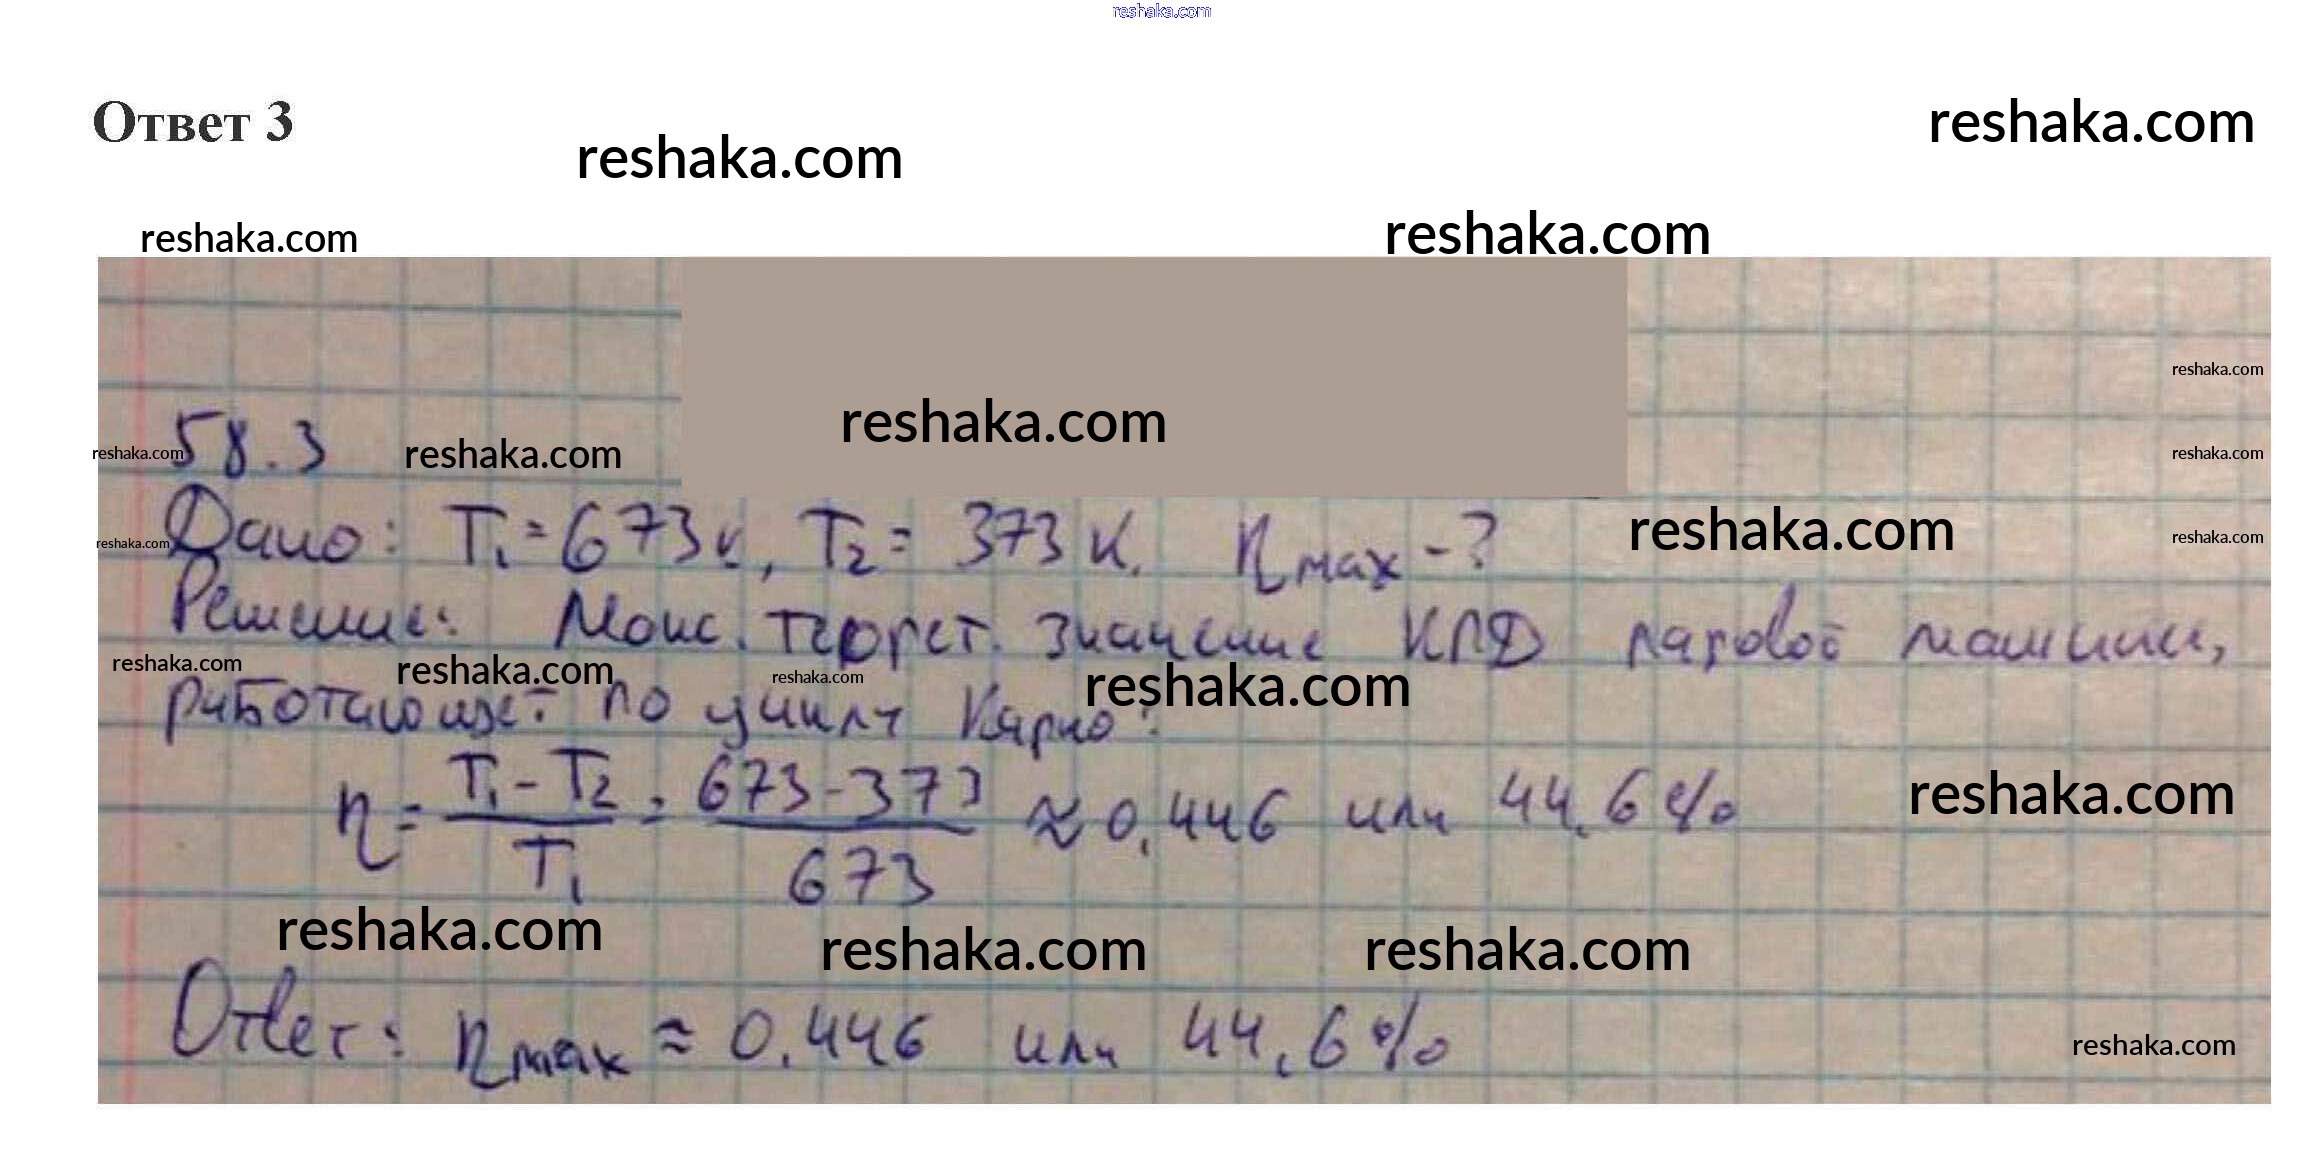 reshaka.com
Ответ 3
reshaka.com
reshaka.com
reshaka.com
reshaka.com
reshaka.com
reshaka.com
58.3
reshaka.com
reshaka.com
reshaka.com
Дано: T₁=673К, T₂= 373 К. ηmax -?
reshaka.com
reshaka.com
reshaka.com
Решение: Макс. теорет. значение КПД паровой машины,
reshaka.com
reshaka.com
reshaka.com
reshaka.com
работающей по циклу Карно:
η = (T₁ - T₂)/T₁ = (673-373)/673 ≈ 0,446 или 44,6%
reshaka.com
reshaka.com
reshaka.com
reshaka.com
Ответ: ηmax ≈ 0,446 или 44,6%
reshaka.com